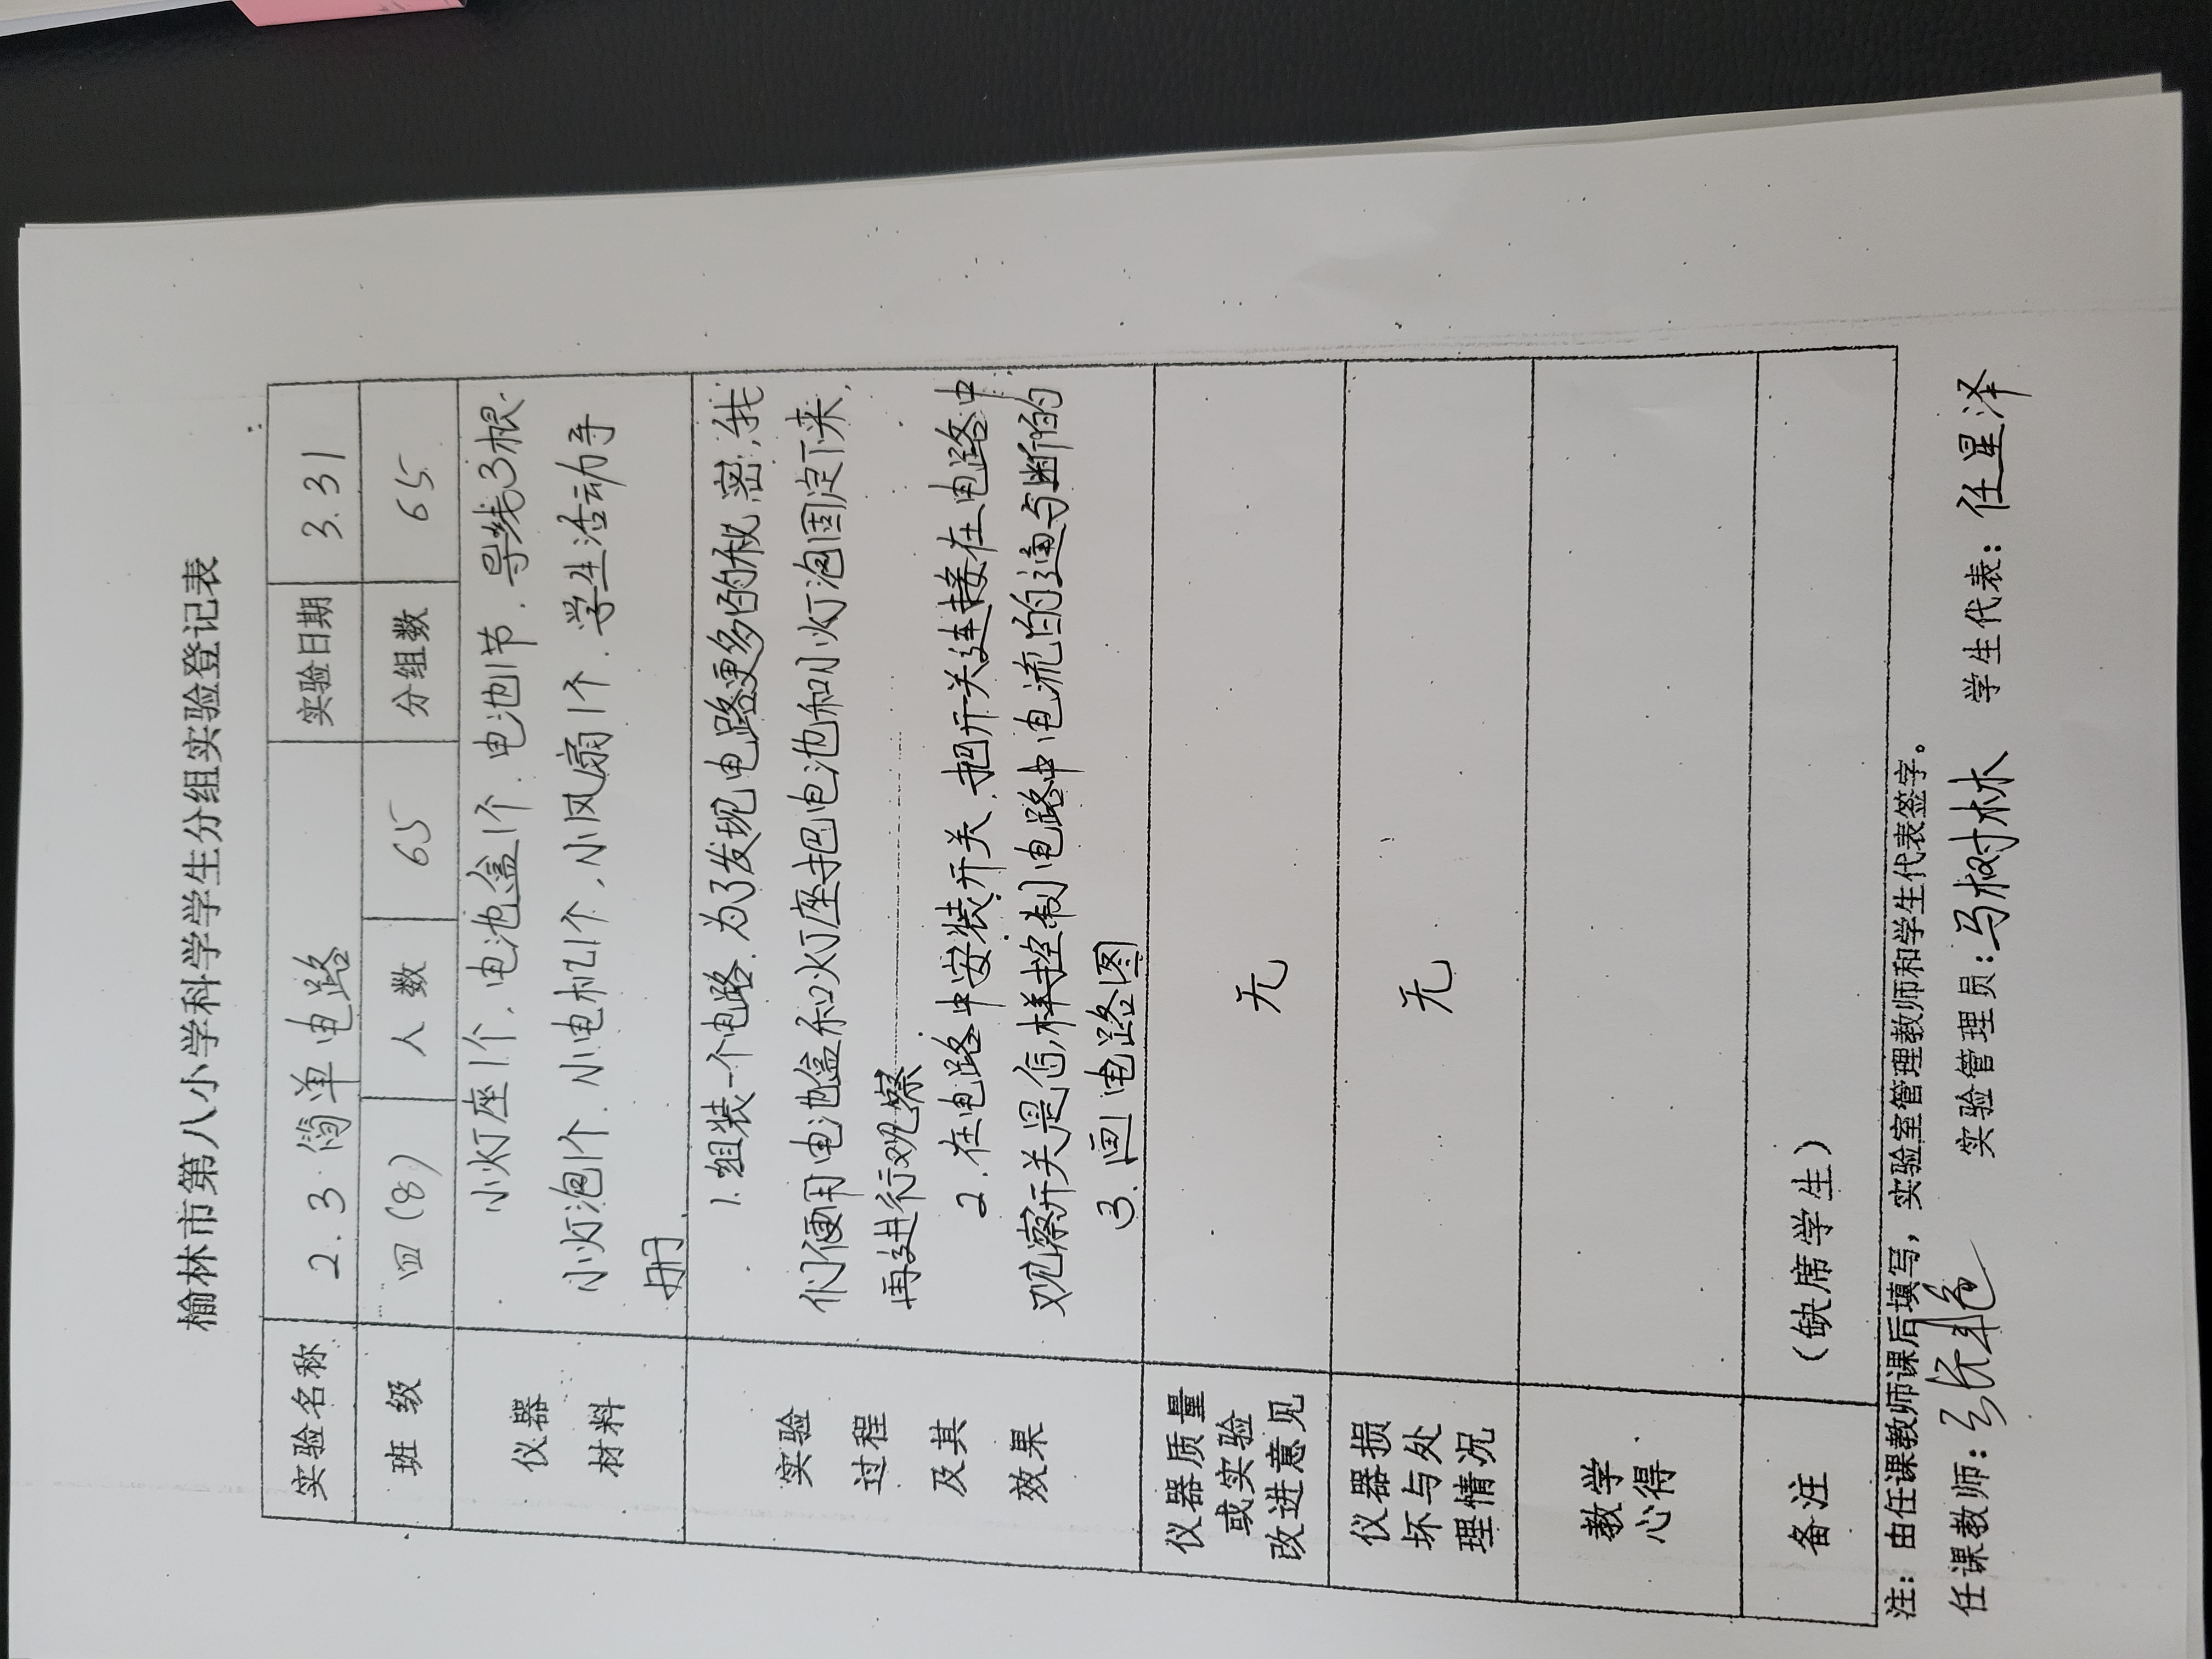 榆林市第八小学科学学生分组实验登记表
实验名称 2.3 简单电路 实验日期 3.31
班 级 四(8) 人 数 65 分组数 65
仪器
材料
小灯座1个.电池盒1个.电池1节.导线3根.
小灯泡1个.小电机1个,小风扇1个.学生活动手
册
实验
过程
及其
效果
1.组装一个电路.为了发现电路更多的秘密,我
们便用电池盒和小灯座把电池和小灯泡固定下来,
再进行观察.
2.在电路中安装开关.把开关连接在电路中
观察开关是怎样控制电路中电流的通与断的
3.画电路图
仪器质量
或实验
改进意见
无
仪器损
坏与处
理情况
无
教学
心得
备注 (缺席学生)
注:由任课教师课后填写,实验室管理教师和学生代表签字。
任课教师: 实验管理员:马树林 学生代表:任星泽